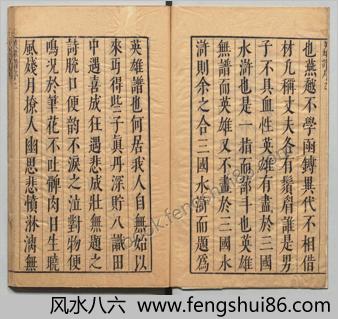 也燕越不學函鏄異代不相借
材凢稱丈夫各有鬚眉誰是男
子不具血性英雄有盡於三國
水滸也是一指而蔀斗也英雄
無譜而英雄又不盡於三國水
滸則余之合三國水滸而題爲
英雄譜也何居我人自無始以
來再得些子眞丹深貯八識田
中遇喜成狂遇悲成壯無題之
詩脫口便韵不淚之泣對物便
鳴況於筆花不吐髀肉日生曉
風殘月撩人幽思悲憤淋漓無
风水八六:www.fengshui86.com